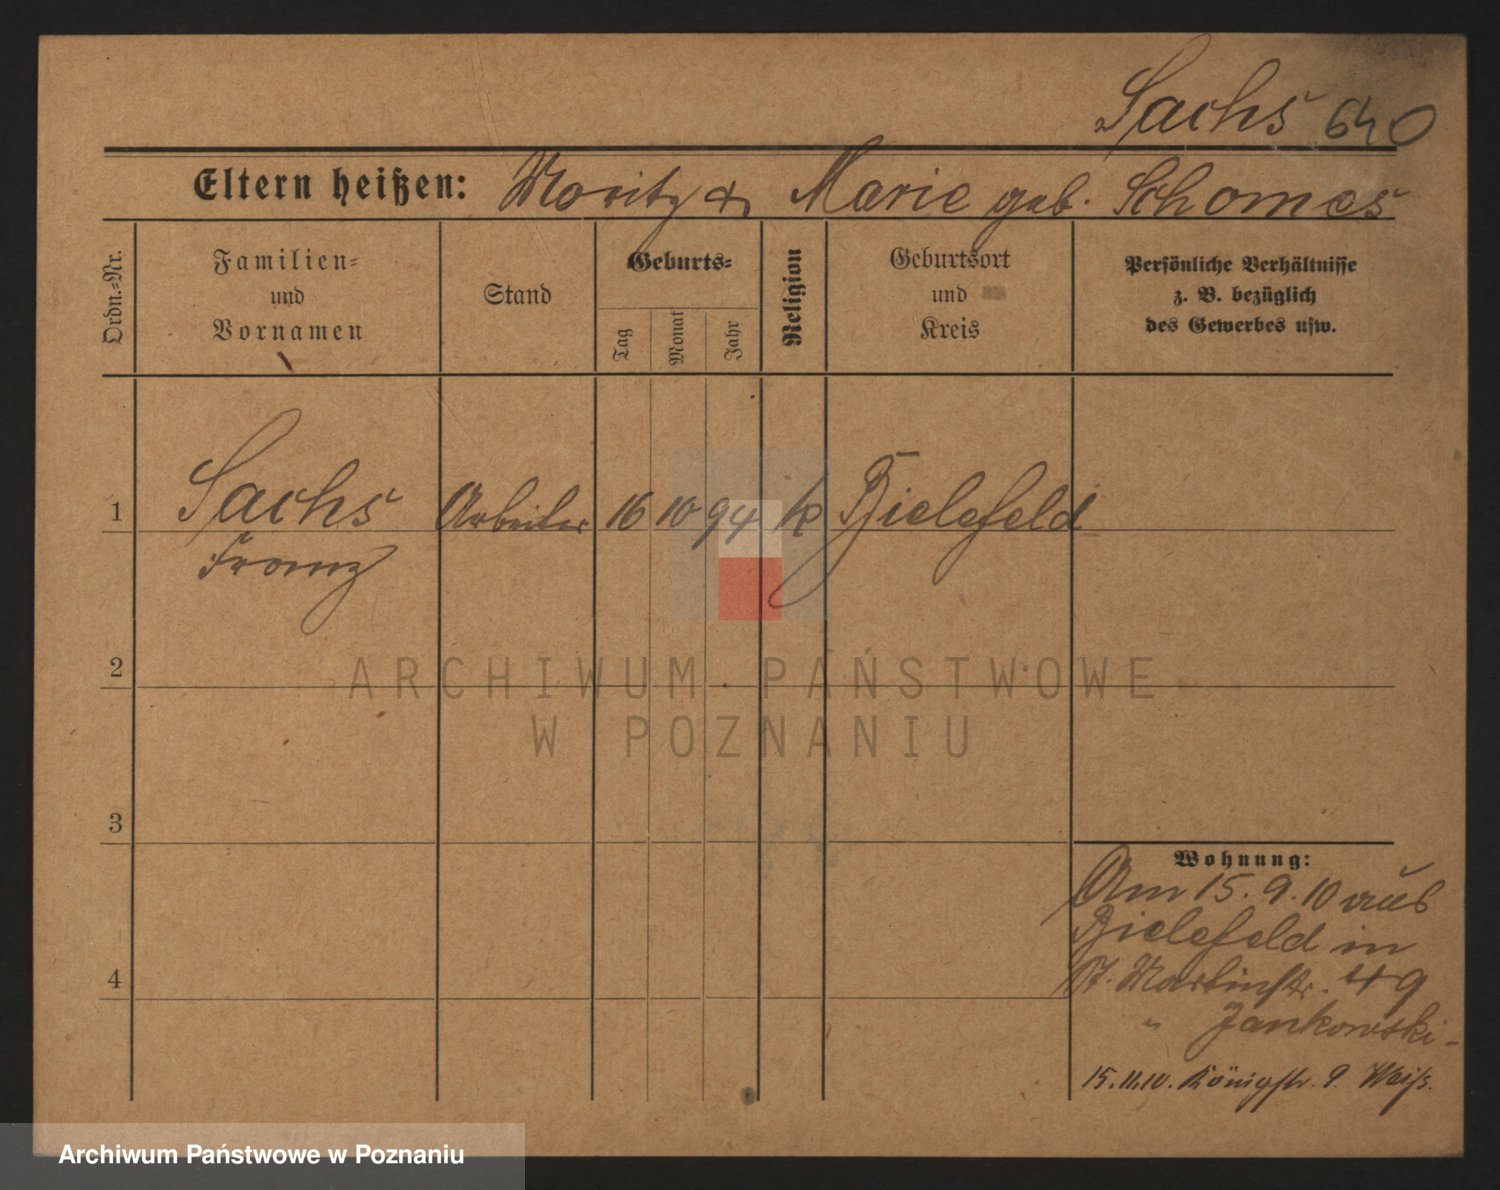 Sachs 640
Eltern heißen: Moritz & Marie geb. Schomes
Ordn.-Nr.
Familien-
und
Vornamen
Stand
Geburts-
Tag
Monat
Jahr
Religion
Geburtsort
und
Kreis
Persönliche Verhältnisse
z. B. bezüglich
des Gewerbes usw.
1 Sachs Arbeiter 16 10 94 k Bielefeld
Franz
2
ARCHIWUM PAŃSTWOWE
W POZNANIU
3
Wohnung:
Am 15.9.10 aus
Bielefeld in
4
St. Martinstr. 49
" Jankowski-
15.11.10. Königstr. 9. Weiß.
Archiwum Państwowe w Poznaniu